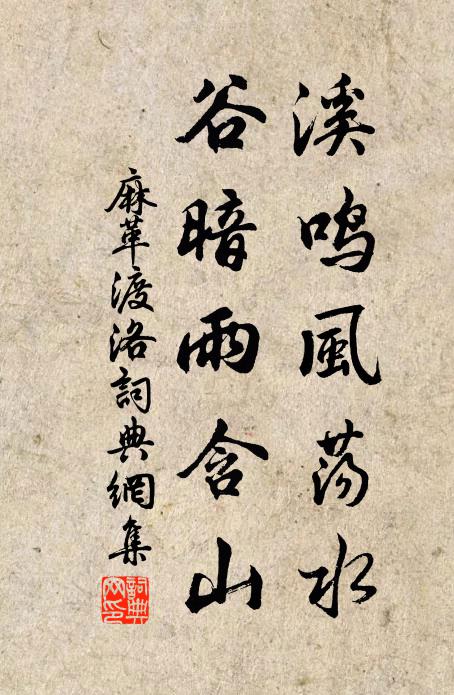 溪鸣風荡水
谷暗雨含山
麻革渡洛詞典網集
詞典網印